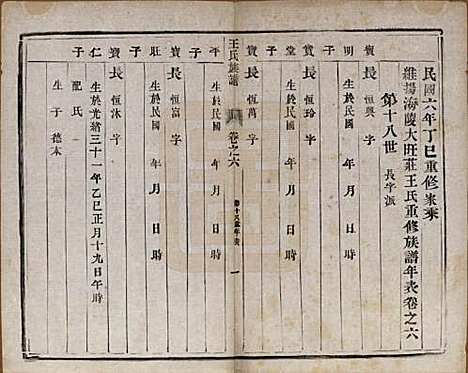 民國六年丁巳重修家乘
維揚海陵大旺莊王氏重修族譜年表卷之六
第十八世 長字派
明子
寶長 恒興 字
生於民國 年 月 日 時
堂子
寶長 恒玲 字
生於民國 年 月 日 時
平子
寶長 恒萬 字
生於民國 年 月 日 時
王氏族譜 卷之六 第十八世年表 一
旺子
寶長 恒富 字
生於民國 年 月 日 時
仁子
寶長 恒沐 字
生於光緒三十一年乙巳正月十九日午時
配氏
生子 德本